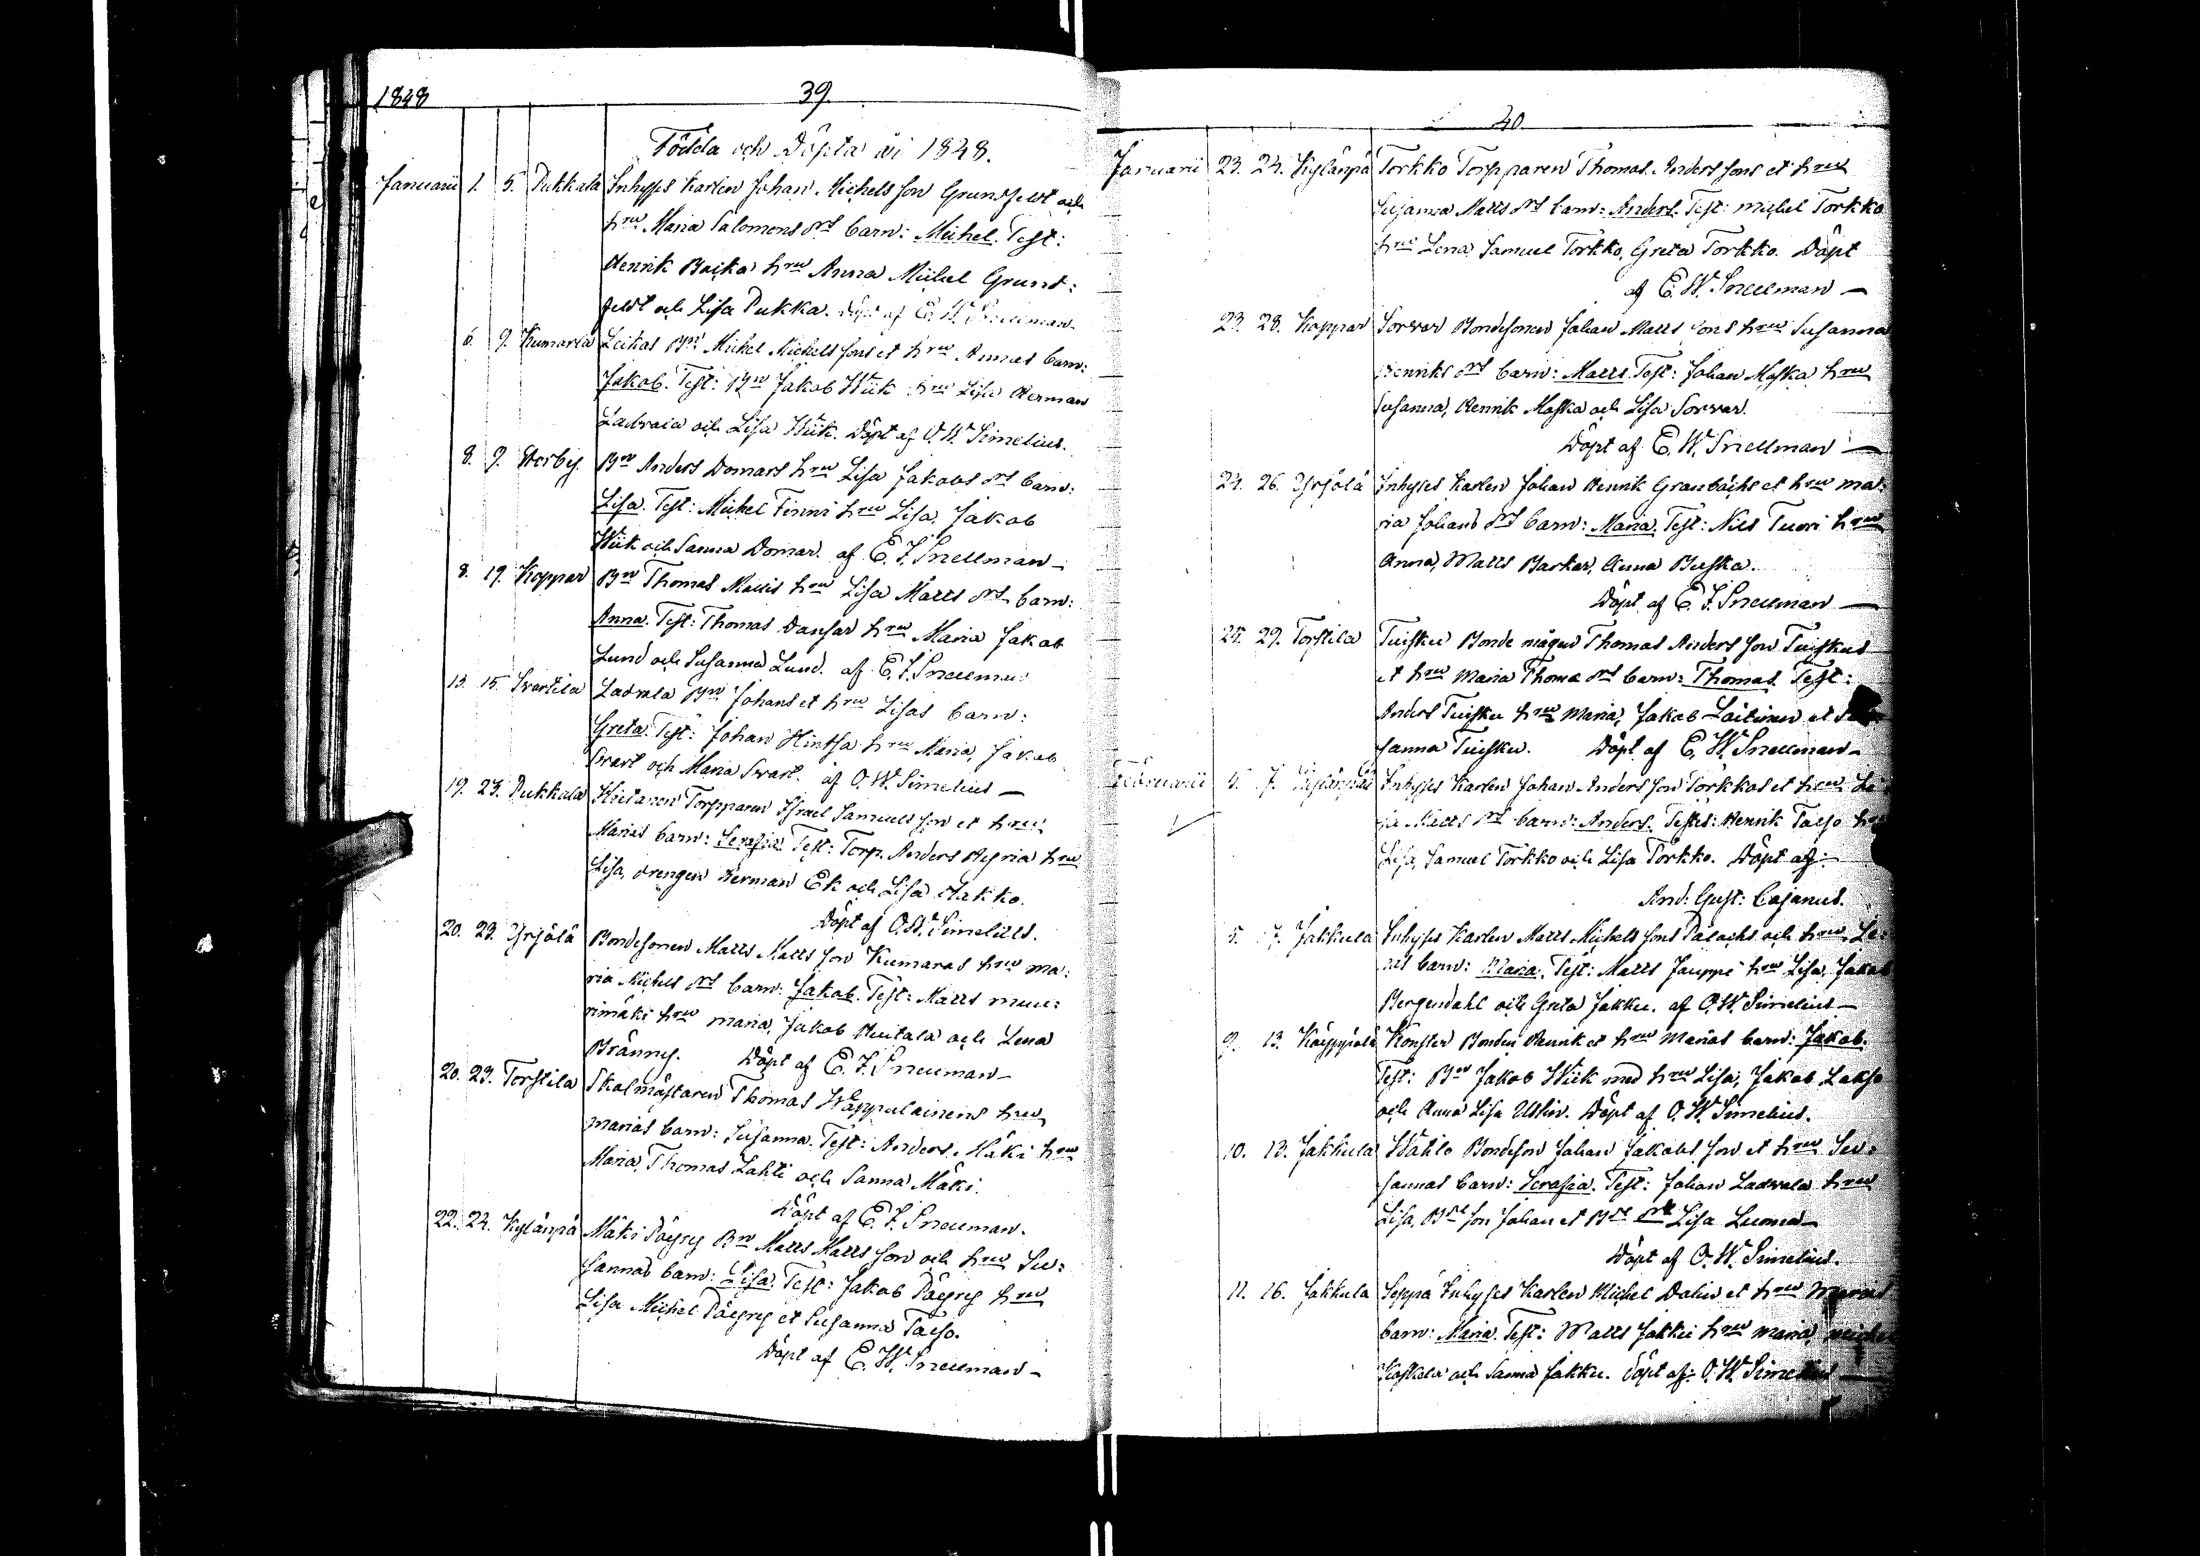 1848
39
Födda och Döpta år 1848.
Januarii 1. 5. Pukkala Inhyses Karlen Johan Michels son Grundfeldt och
hru Maria Salomons drs barn: Michel. Test:
Henrik Backa hru Anna Michel Grund:
feldt och Lisa Pukka. Döpt af E. W. Snellman.
6. 9. Kumarla Leikas Bn Michel Michels sons et hru Annas barn:
Jakob. Test: Bn Jakob Wiik hru Lisa Herman
Ladvala och Lisa Wiik. Döpt af O. W. Simelius.
8. 9. Storby Bn Anders Domars hru Lisa Jakobs drs barn:
Lisa. Test: Michel Finni hru Lisa, Jakob
Wiik och Sanna Domar. af E. F. Snellman
8. 19. Koppar Bn Thomas hru Lisa Matts drs barn:
Anna. Test: Thomas Dansar hru Maria Jakob
Lund och Susanna Lund. af E. F. Snellman
13. 15. Svartila Ladvala Bn Johans et hru Lisas barn:
Greta. Test: Johan Hintsa hru Maria, Jakob
Svart och Maria Svart. af O. W. Simelius
19. 23. Pukkala Torpparen Israel Samuels son et hru
Marias barn: Serafia. Test: Torp. Anders hru
Lisa, drengen Herman Ek och Lisa Hakko.
Döpt af O. W. Simelius.
20. 23. Yrjälä Bondesonen Matts Matts son Kumaras hru Ma:
ria Michels drs barn: Jakob. Test: Matts Muu:
rimäki hru Maria, Jakob Huitala och Lena
Bränny. Döpt af E. F. Snellman
20. 23. Torstila Skolmästaren Thomas Wäppulainens hru
Marias barn: Susanna. Test: Anders Mäki hru
Maria, Thomas Lahti och Sanna Mäki.
Döpt af E. F. Snellman.
22. 24. Kylänpä Mäki Päyry Bn Matts Matts son och hru Su:
sannas barn: Lisa. Test: Jakob Päyry hru
Lisa Michel Päyry et Susanna Talso.
Döpt af E. W. Snellman
40
Januarii 23. 24. Kylänpä Torkko Torpparen Thomas Anders sons et hru
Susanna Matts drs barn: Anders. Test: Michel Torkko
hru Lena, Samuel Torkko, Greta Torkko. Döpt
af E. W. Snellman
23. 28. Koppar Sorvar Bondesonen Johan Matts sons hru Susanna
Henriks drs barn: Matts. Test: Johan Maska hru
Susanna, Henrik Maska och Lisa Sorvar.
Döpt af E. W. Snellman
24. 26. Yrjälä Inhyses Karlen Johan Henrik Granbäcks et hru Ma:
ria Johans drs barn: Maria. Test: Nils Tuori hru
Anna, Matts Backar, Anna Buska.
Döpt af E. F. Snellman
25. 29. Torstila Tuisku Bonde mågen Thomas Anders son Tuiskus
et hru Maria Thomæ drs barn: Thomas. Test:
Anders Tuisku hru Maria, Jakob Loitinen et
sanna Tuisku. Döpt af E. W. Snellman
Februarii 5. 7. Kylänpä Inhyses Karlen Johan Anders son Torkkos et hru
Matts drs barn: Anders. Testes: Henrik Talso
Lisa, Samuel Torkko och Lisa Torkko. Döpt af
And: Gust: Cajanus.
5. 7. Jakkula Inhyses Karlen Matts Michels sons Palachs och hru Le:
nas barn: Maria. Test: Matts Jauppi hru Lisa, Jakob
Bergendahl och Greta Jakku. af O. W. Simelius
9. 13. Käyppälä Konster Bonden Henrik et hru Marias barn: Jakob.
Test: Bn Jakob Wiik med hru Lisa, Jakob Lakso
och Anna Lisa Uslin. Döpt af O. W. Simelius.
10. 13. Jakkula Wähle Bondeson Johan Jakobs son et hru Su:
sannas barn: Serafia. Test: Johan Ladvala hru
Lisa, Bde son Johan et Bde dr Lisa Luoma
Döpt af O. W. Simelius.
11. 16. Jakkula Seppä Inhyses Karlen Michel Dalin et hru Marias
barn: Maria. Test: Matts Jakku hru Maria, Michel
Koskela och Sanna Jakku. Döpt af O. W. Simelius